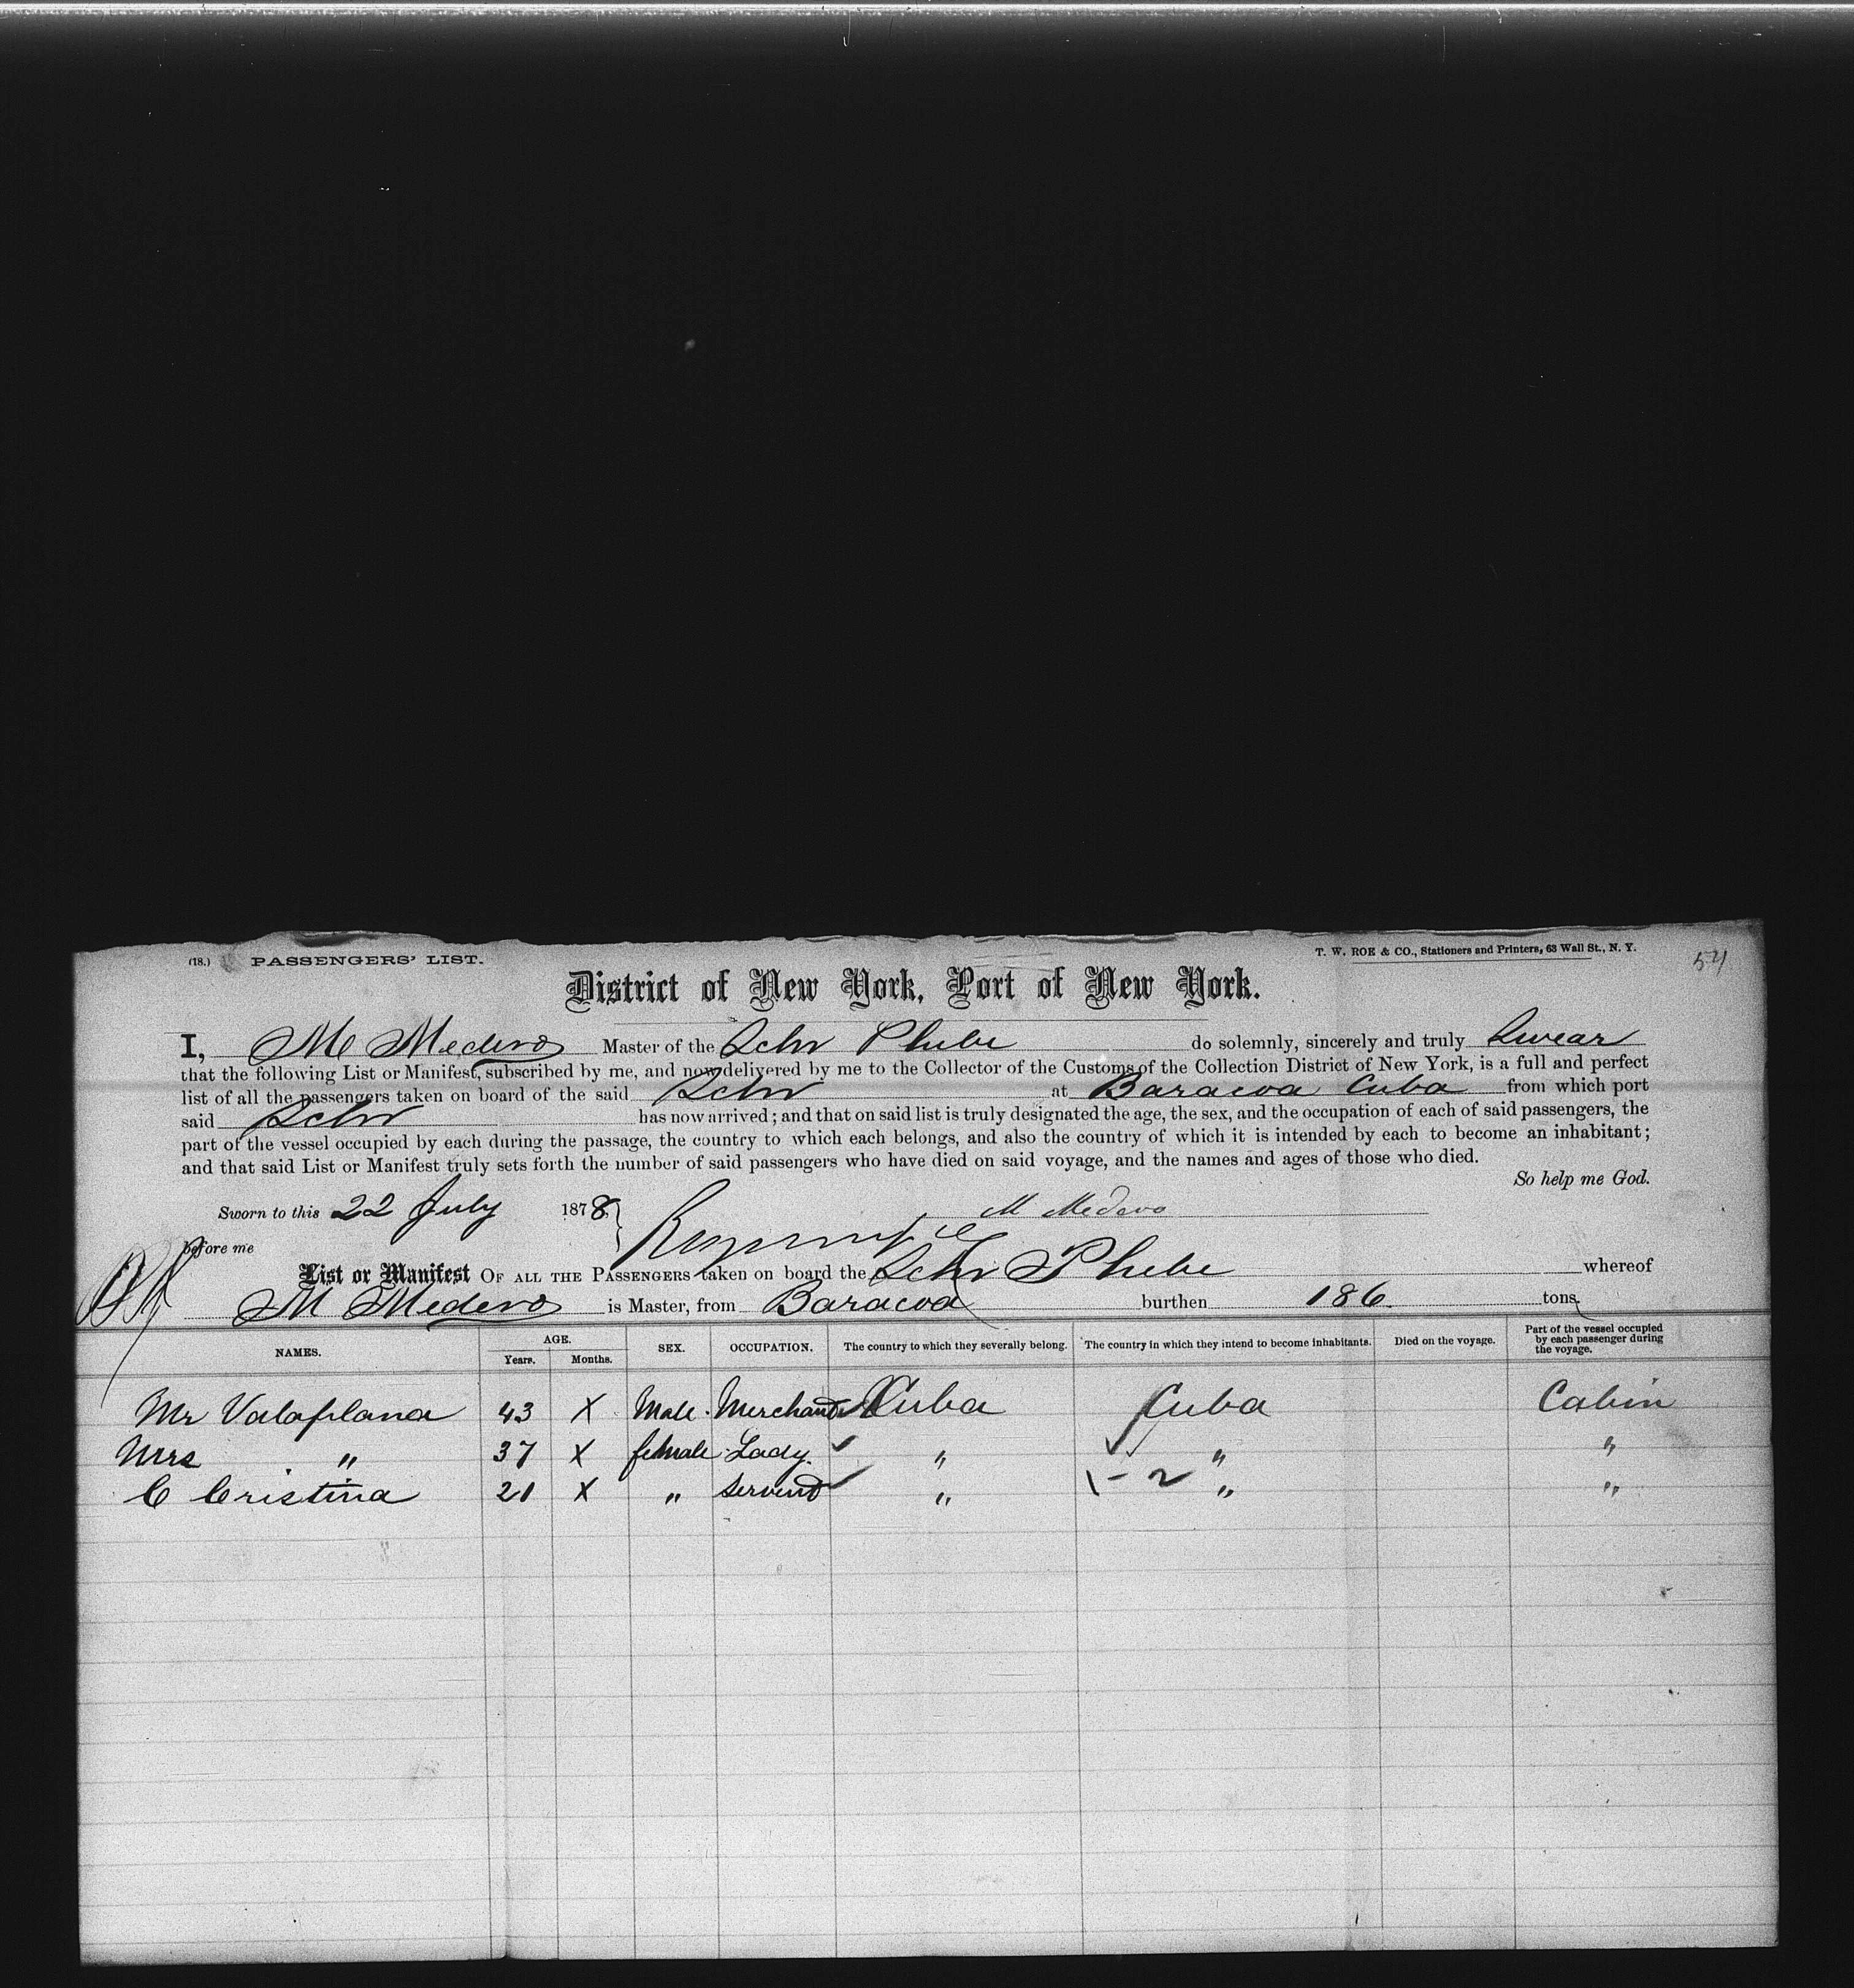 (18.) PASSENGERS' LIST. T. W. ROE & CO., Stationers and Printers, 63 Wall St., N. Y.
District of New York, Port of New York.
I, M Medero Master of the Schr Phebe do solemnly, sincerely and truly Swear
that the following List or Manifest, subscribed by me, and now delivered by me to the Collector of the Customs of the Collection District of New York, is a full and perfect
list of all the passengers taken on board of the said Schr at Baracoa Cuba from which port
said Schr has now arrived; and that on said list is truly designated the age, the sex, and the occupation of each of said passengers, the
part of the vessel occupied by each during the passage, the country to which each belongs, and also the country of which it is intended by each to become an inhabitant;
and that said List or Manifest truly sets forth the number of said passengers who have died on said voyage, and the names and ages of those who died.
So help me God.
Sworn to this 22 July 1878 M Medero
before me
List or Manifest OF ALL THE PASSENGERS taken on board the Schr Phebe whereof
M Medero is Master, from Baracoa burthen 186 tons
NAMES. AGE. Years. Months. SEX. OCCUPATION. The country to which they severally belong. The country in which they intend to become inhabitants. Died on the voyage. Part of the vessel occupied by each passenger during the voyage.
Mr Valaplana 43 X Male Merchand Cuba Cuba Cabin
Mrs " 37 X female Lady " " "
C Cristina 21 X " Servend " 1-2 " "